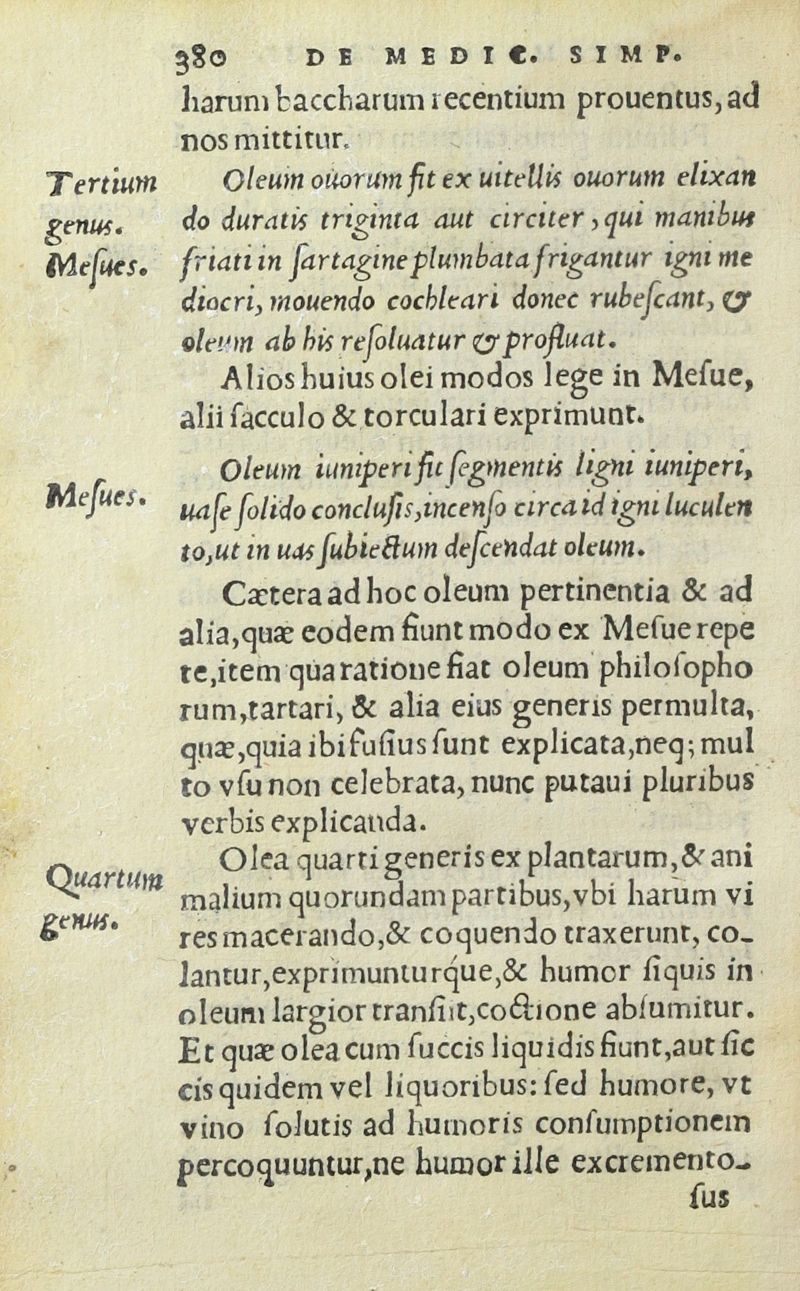 380 DE MEDIC. SIMP.
harum baccharum recentium prouentus, ad
nos mittitur.
Tertium
genus.
Mesues.
Oleum ouorum fit ex uitellis ouorum elixan
do duratis triginta aut circiter, qui manibus
friati in sartagine plumbata frigantur igni me
diocri, mouendo cochleari donec rubescant, &
oleum ab his resoluatur & profluat.
Alios huius olei modos lege in Mesue,
alii sacculo & torculari exprimunt.
Mesues.
Oleum iuniperi fit segmentis ligni iuniperi,
uase solido conclusis, incenso circa id igni luculen
to, ut in uas subiectum descendat oleum.
Cætera ad hoc oleum pertinentia & ad
alia, quæ eodem fiunt modo ex Mesue repe
te, item qua ratione fiat oleum philosopho
rum, tartari, & alia eius generis permulta,
quæ, quia ibi fusius sunt explicata, neq; mul
to vsu non celebrata, nunc putaui pluribus
verbis explicanda.
Quartum
genus.
Olea quarti generis ex plantarum, & ani
malium quorundam partibus, vbi harum vi
res macerando, & coquendo traxerunt, co-
lantur, exprimunturque, & humor siquis in
oleum largior transiit, coctione absumitur.
Et quæ olea cum succis liquidis fiunt, aut sic
cis quidem vel liquoribus: sed humore, vt
vino solutis ad humoris consumptionem
percoquuntur, ne humor ille excremento-
sus